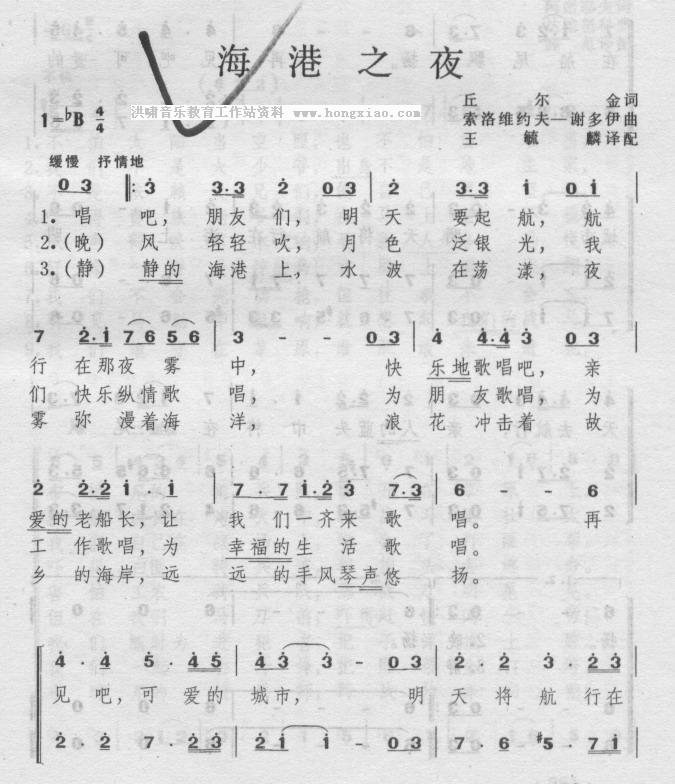 海港之夜
洪啸音乐教育工作站资料 www.hongxiao.com
丘尔金词
索洛维约夫一谢多伊曲
王毓麟译配
1=♭B 4/4
缓慢 抒情地
0 3 ‖: 3 3·3 2 0 3 2 3·3 1 0 1
1. 唱 吧, 朋友们, 明天 要起航, 航
2.(晚)风 轻轻吹, 月色 泛银光, 我
3.(静)静的海港上, 水波 在荡漾, 夜
7 2·1 7 6 5 6 3 - - 0 3 4 4·4 3 0 3
行 在那夜雾 中, 快 乐地歌唱吧, 亲
们 快乐纵情歌 唱, 为 朋友歌唱, 为
雾 弥漫着海 洋, 浪 花冲击着 故
2 2·2 1·1 7·7 1·2 3 7·3 6 - - 6
爱的老船长, 让 我们一齐来歌 唱。 再
工作歌唱, 为 幸福的生活歌 唱。
乡的海岸, 远 远的手风琴声悠 扬。
4·4 5·4 5 4 3 3 - 0 3 2·2 3·2 3
见吧, 可爱的城市, 明 天将航行在
2·2 7·2 3 2 1 1 - 0 3 7·6 #5·7 1